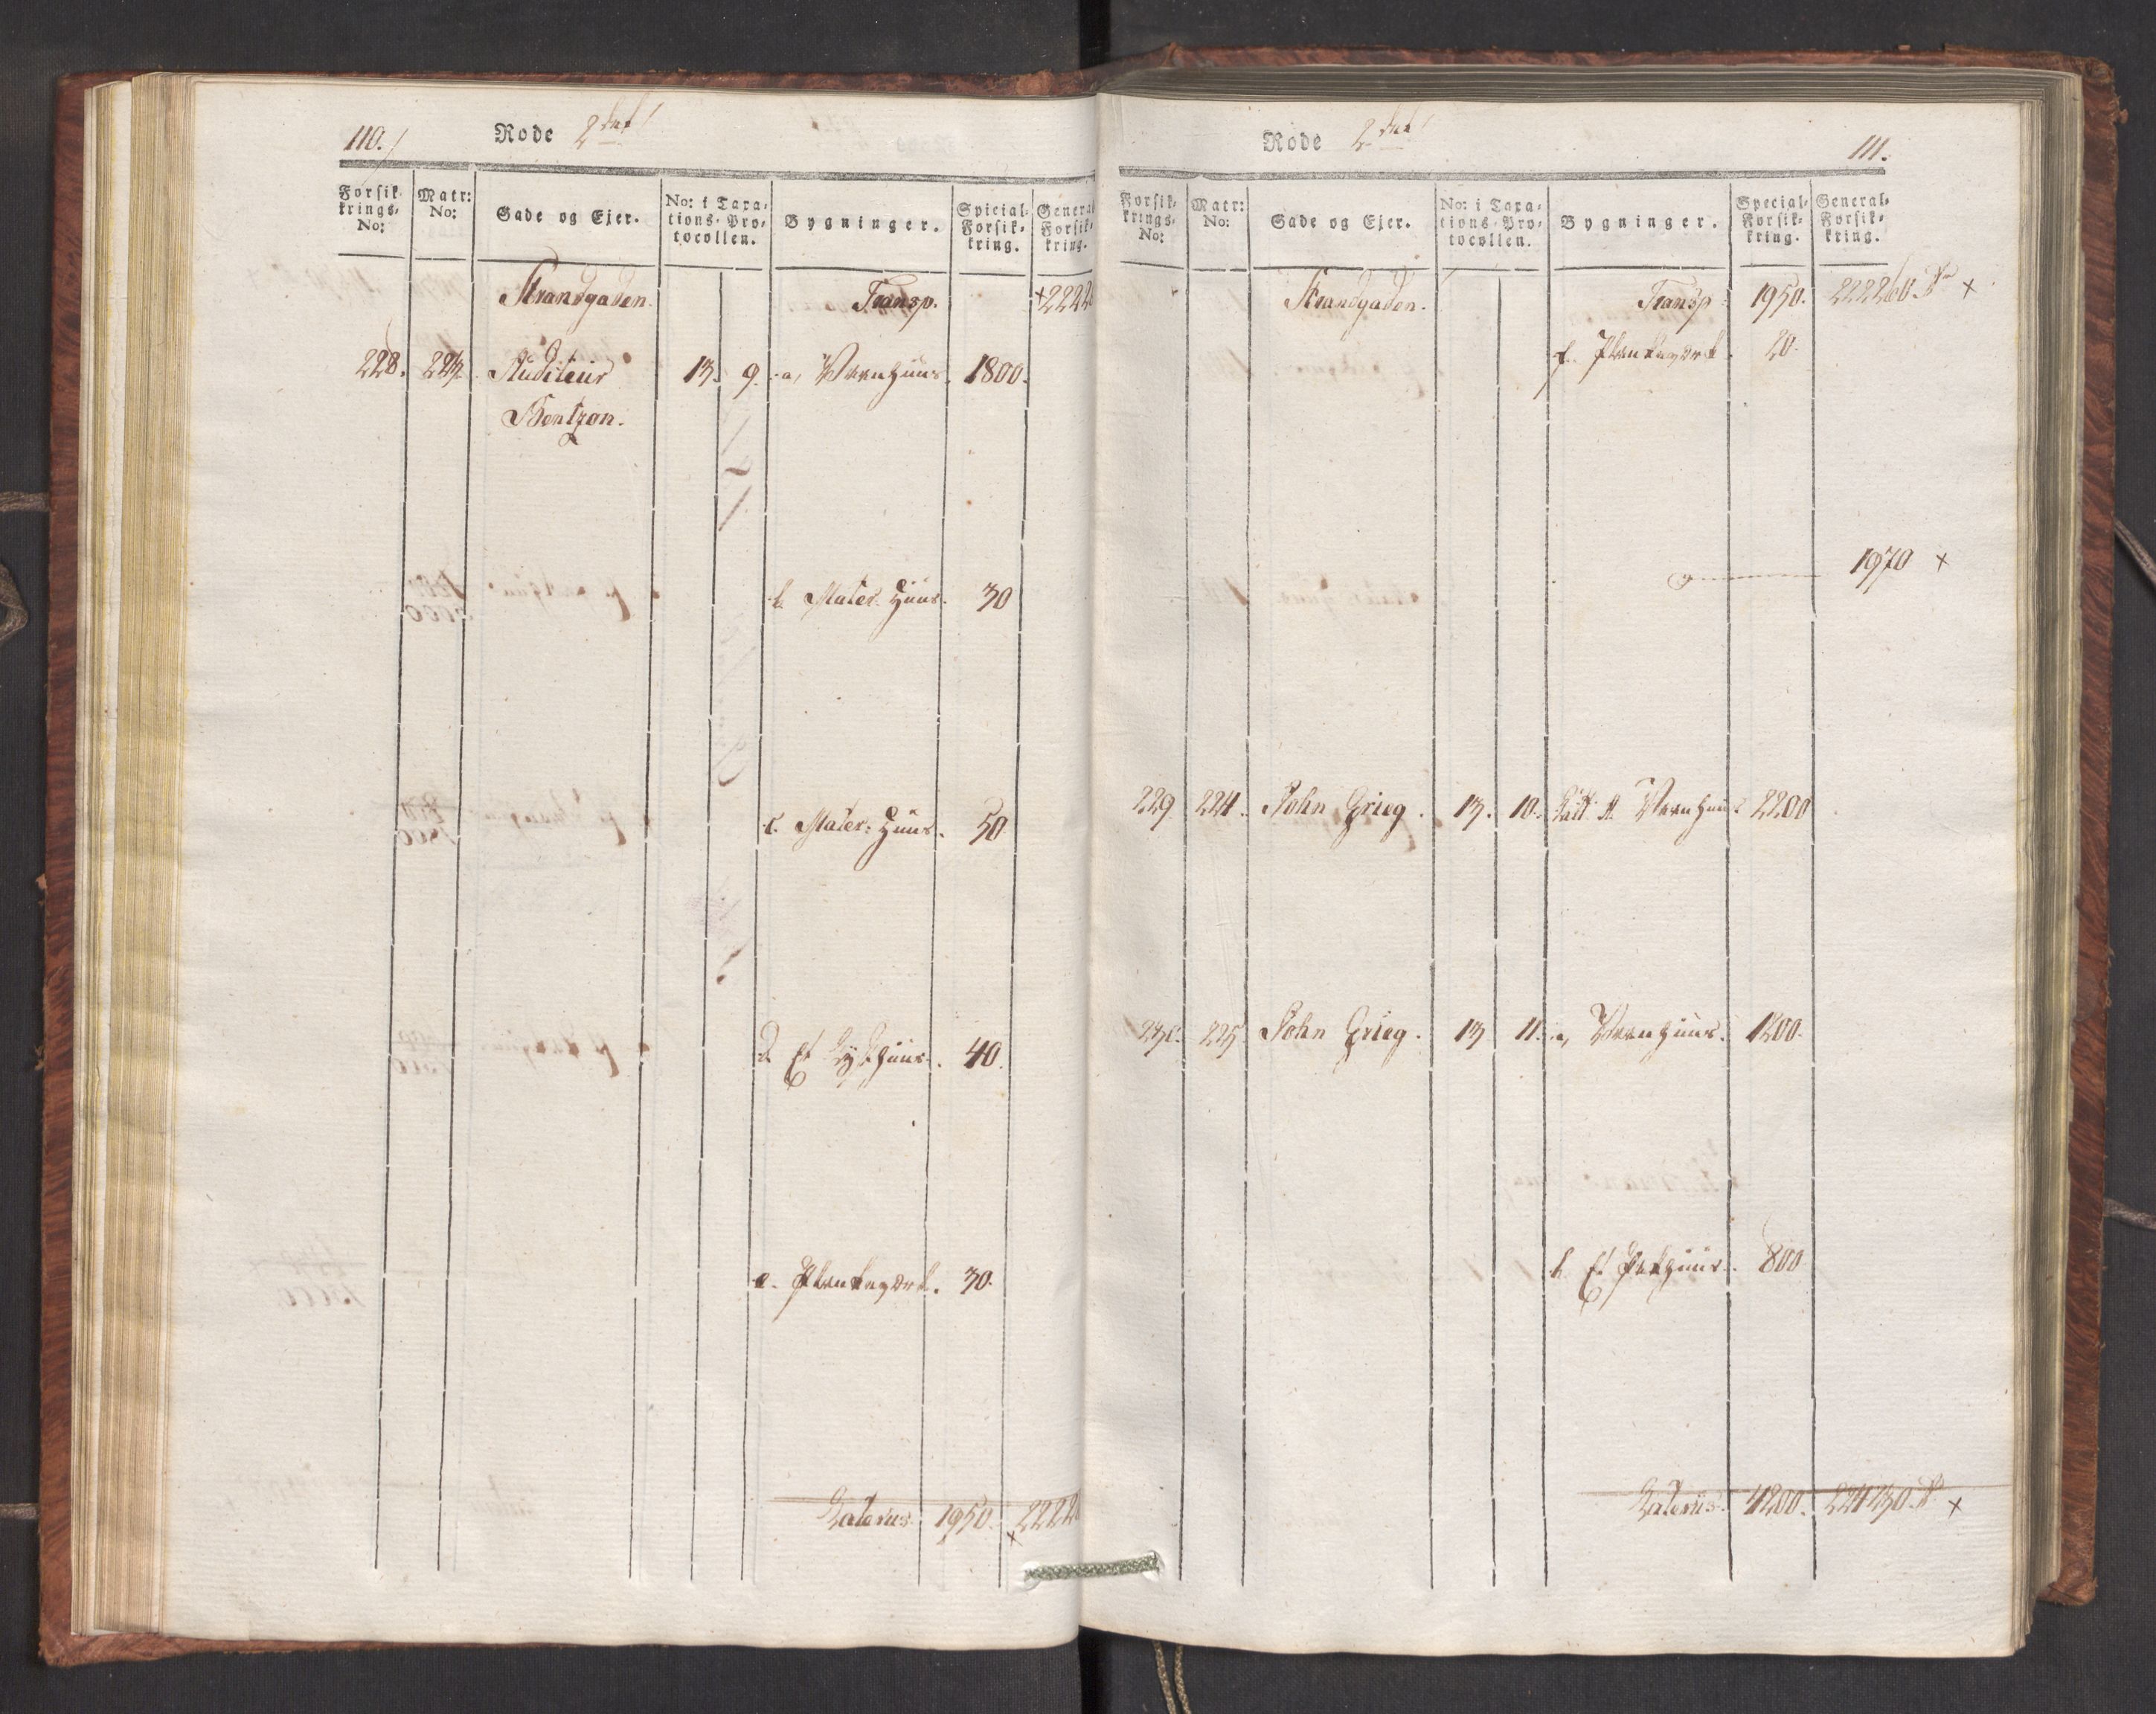 110.
Rode 2det
Forsik-
krings-
No:
Matr:
No:
Gade og Ejer.
No: i Taxa-
tions-Pro-
tocollen.
Bygninger.
Special-
Forsik-
kring.
General
Forsik-
kring.
Strandgaden. Transp. 2222
228. 223. Auditeur 13. 9. a, Vaanhuus. 1800.
Bentzon.
b. Mater. Huus. 30
c. Mater: Huus. 50
d. Et Lysthuus. 40.
e. Plankeværk. 30.
Laterus 1950. 2222
Rode 2det
111.
Forsik-
krings-
No:
Matr:
No:
Gade og Ejer.
No: i Taxa-
tions-Pro-
tocollen.
Bygninger.
Special-
Forsik-
kring.
General-
Forsik-
kring.
Strandgaden. Transp: 1950. 222260. x
f. Plankeværk. 20.
1970 x
229. 224. John Grieg. 13. 10. A. Vaanhuus 2200
230. 225 John Grieg. 13 11. a, Vaanhuus. 1200.
b. Et Pakhuus. 800
Laterus. 4200. 224230. x